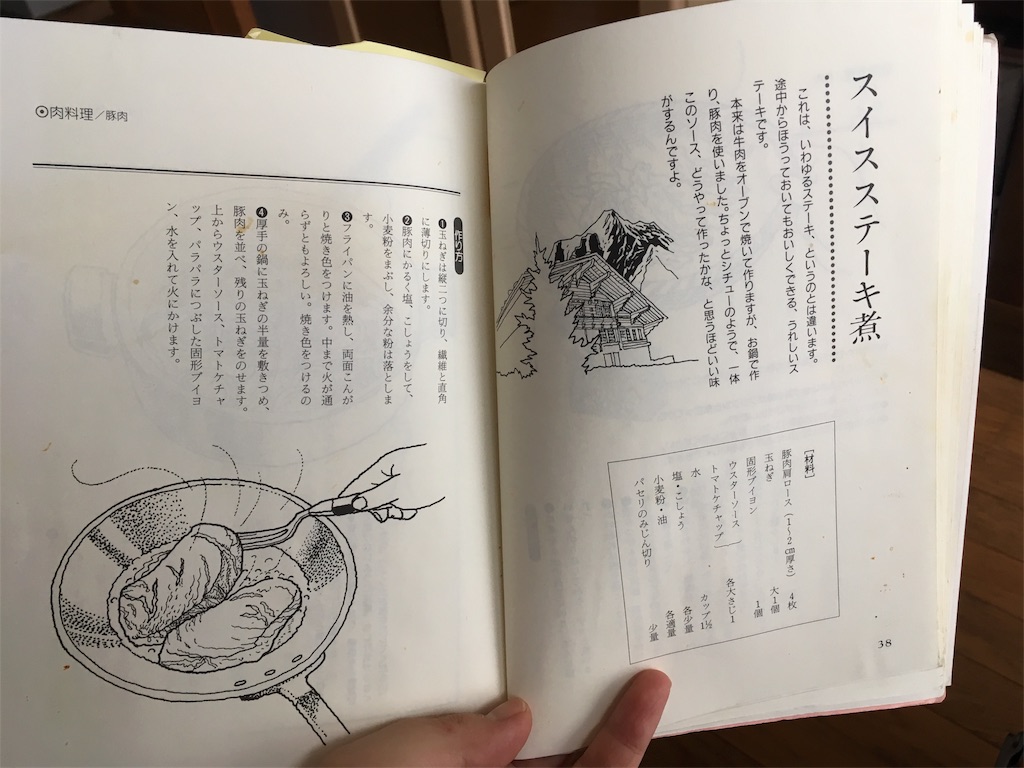 スイスステーキ煮
これは、いわゆるステーキ、というのとは違います。
途中からほうっておいてもおいしくできる、うれしいス
テーキです。
本来は牛肉をオーブンで焼いて作りますが、お鍋で作
り、豚肉を使いました。ちょっとシチューのようで、一体
このソース、どうやって作ったかな、と思うほどいい味
がするんですよ。
[材料]
豚肉肩ロース(1~2cm厚さ) 4枚
玉ねぎ 大1個
固形ブイヨン 1個
ウスターソース
トマトケチャップ 各大さじ1
水 カップ1½
塩・こしょう 各少量
小麦粉・油 各適量
パセリのみじん切り 少量
38
⦿肉料理/豚肉
作り方
❶玉ねぎは縦二つに切り、繊維と直角
に薄切りにします。
❷豚肉にかるく塩、こしょうをして、
小麦粉をまぶし、余分な粉は落としま
す。
❸フライパンに油を熱し、両面こんが
りと焼き色をつけます。中まで火が通
らずともよろしい。焼き色をつけるの
み。
❹厚手の鍋に玉ねぎの半量を敷きつめ、
豚肉を並べ、残りの玉ねぎをのせます。
上からウスターソース、トマトケチャ
ップ、パラパラにつぶした固形ブイヨ
ン、水を入れて火にかけます。